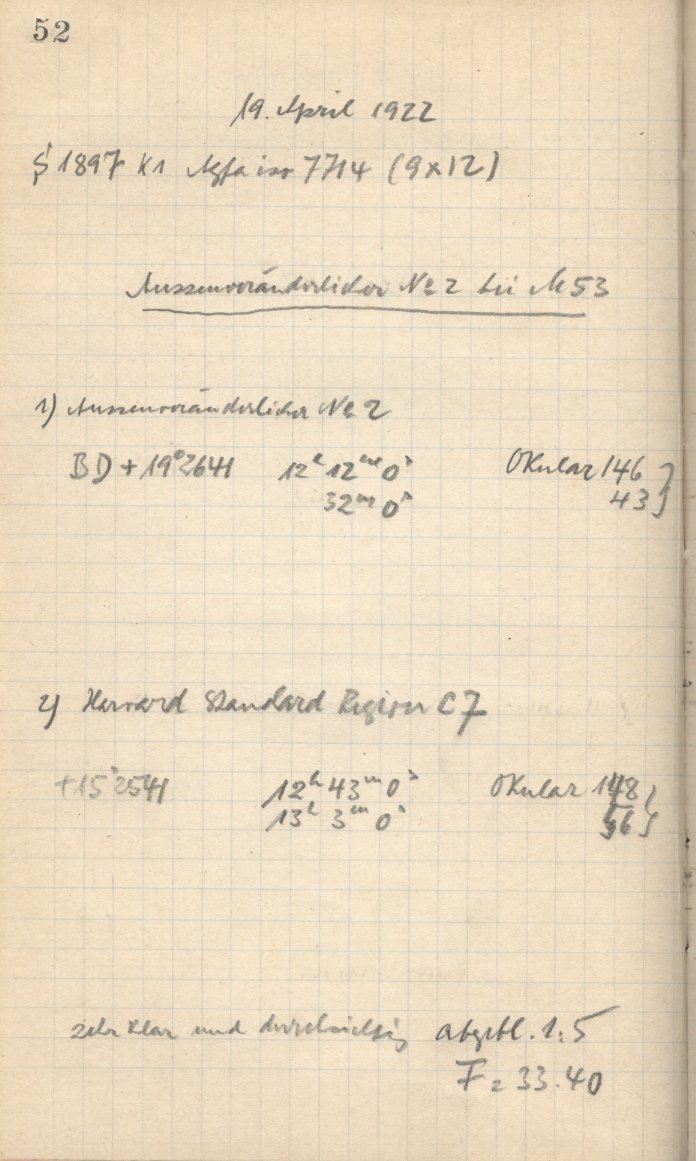 52
19. April 1922
S 1897 K1 Agfa iso 7714 (9x12)
Aussenveränderlicher No 2 bei M53
1) Aussenveränderlicher No 2
BD + 19°2641 12h 12m 0s Okular 146
32m 0s 43
2) Harvard Standard Region C7
+15°2541 12h 43m 0s Okular 148
13h 3m 0s 56
sehr klar und durchsichtig abgebl. 1:5
F = 33.40